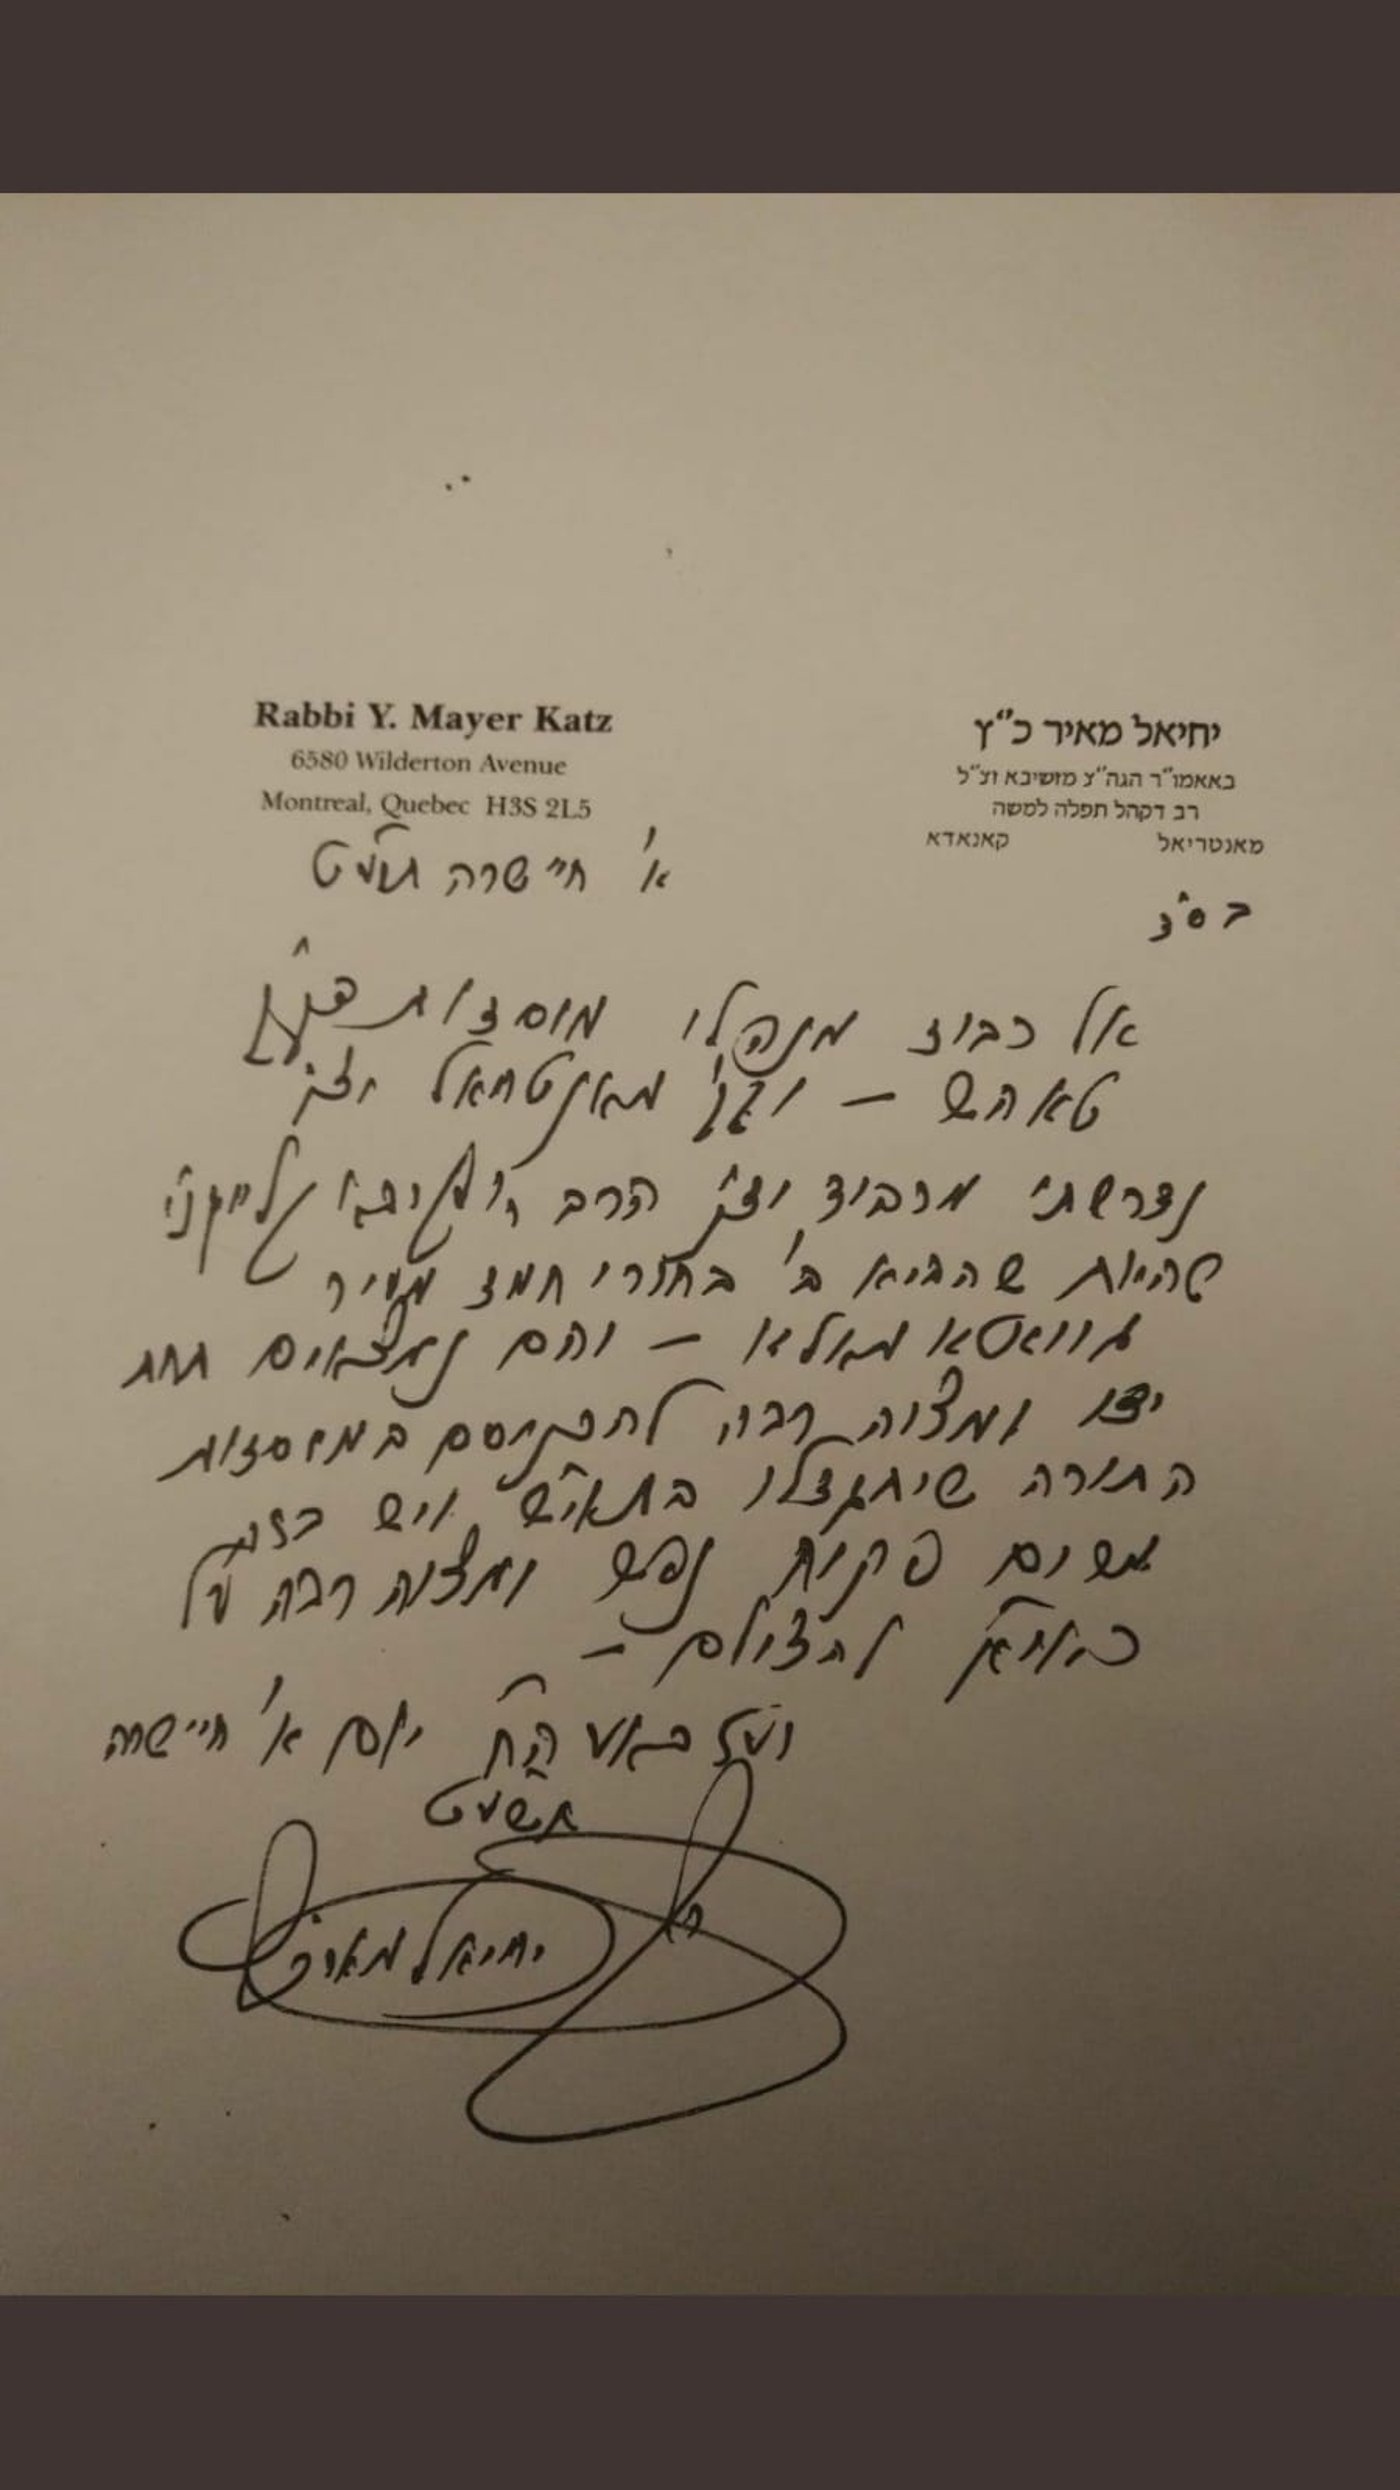 Rabbi Y. Mayer Katz
6580 Wilderton Avenue
Montreal, Quebec H3S 2L5
יחיאל מאיר כ"ץ
באאמו"ר הגה"צ מזשיבא זצ"ל
רב דקהל תפלה למשה
מאנטריאל קאנאדא
א' חיי שרה תע"ט
בס"ד
אל כבוד מנהלי מוסדות
טאהש – מאנטריאל
נדרשתי מכבוד הרב
שהביא ב' בחורי חמד מעיר
גוואטאמאלא – והם נמצאים תחת
ידו ומצוה רבה להכניסם במוסדות
התורה שיתגדלו בתוי"ש ויש בזה
משום פקוח נפש ומצוה רבה על
כאו"א להצילם –
ועז"כ באעה"ח יום א' חיי שרה
תשע"ט
יחיאל מאיר